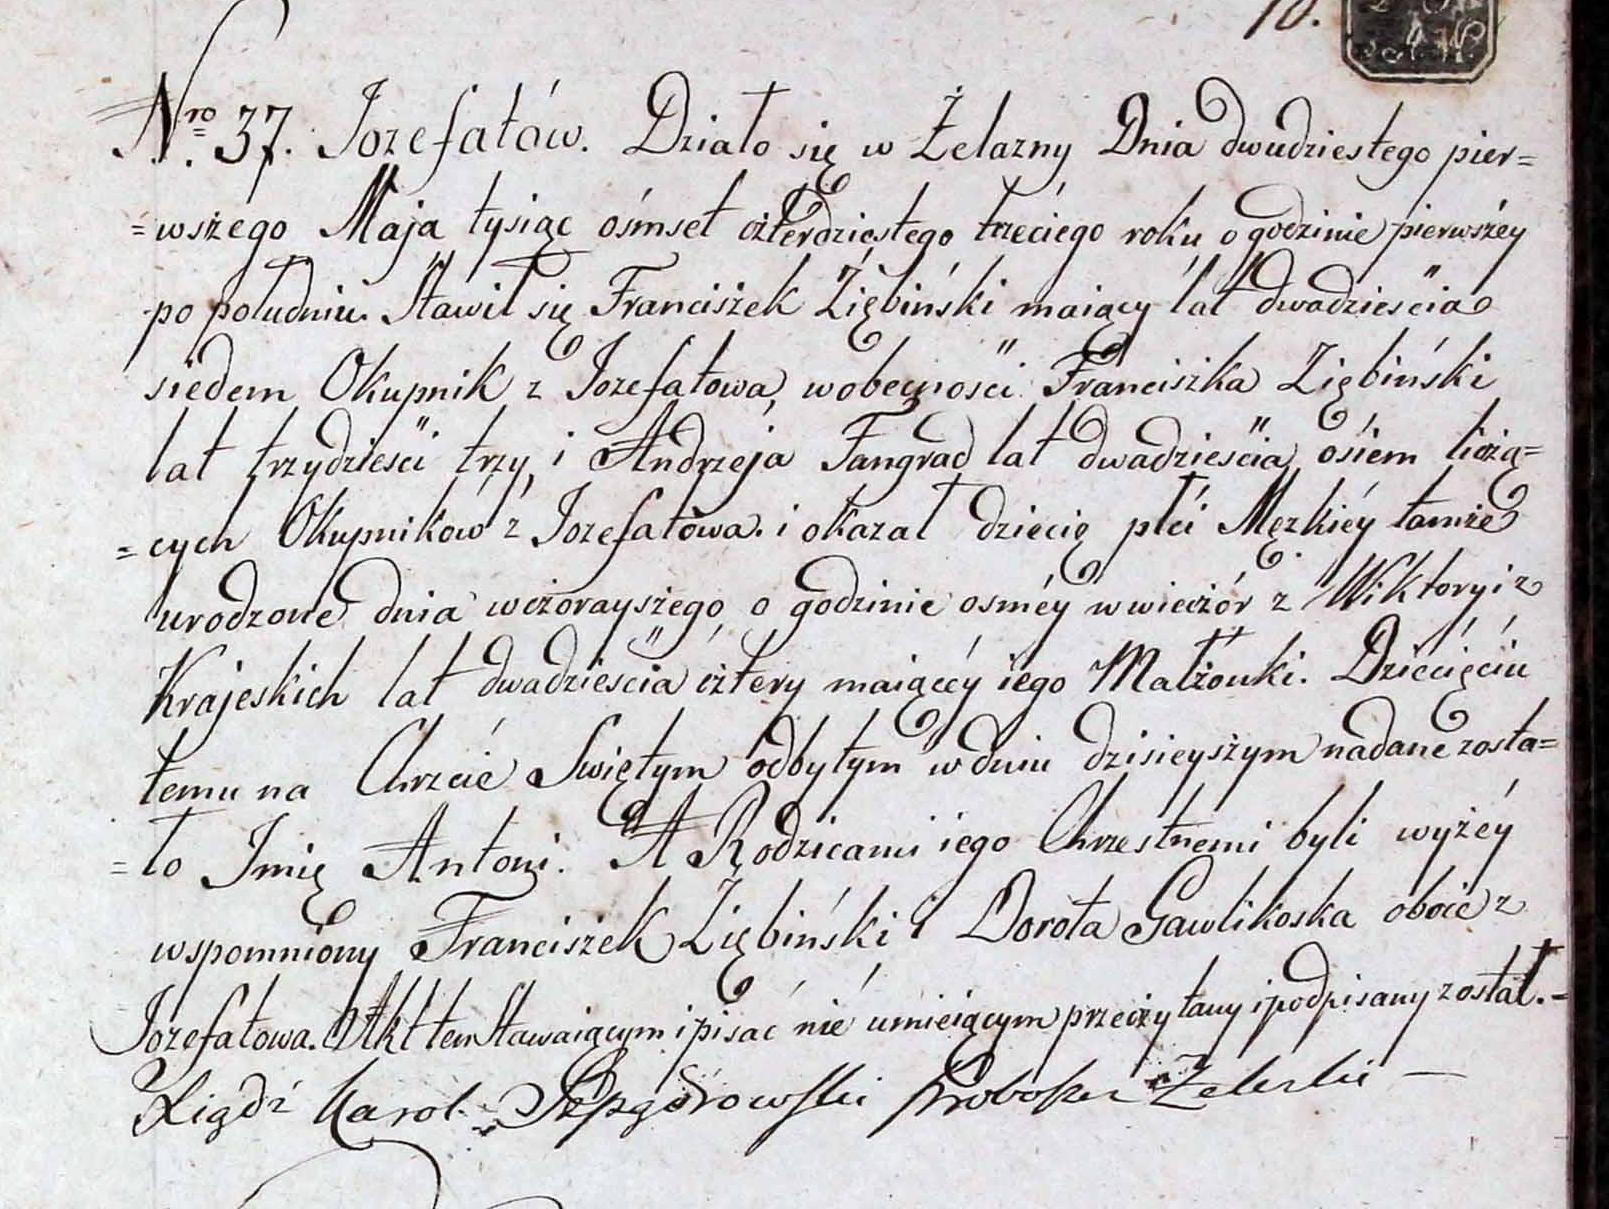 10.
Nro 37. Jozefatów. Działo się w Żelazny Dnia dwudziestego pier=
=wszego Maja tysiąc ośmset czterdziestego trzeciego roku o godzinie pierwszéy
po południu. Stawił się Franciszek Ziębiński maiący lat dwadzieścia
siedem Okupnik z Jozefatowa, wobecności Franciszka Ziębiński
lat trzydzieści trzy, i Andrzeja Fangrad lat dwadzieścia ośiem licżą=
=cych Okupników z Jozefatowa. i okazał dziecię płci Męzkiéy tamże
urodzone dnia wczorayszego o godzinie osméy wwieczór z Wiktoryi z
Krajeskich lat dwadzieścia cztery maiącéy iego Małżonki. Dziecięciu
temu na Chrzcie Swiętym odbytym w dniu dzisieyszym nadane zosta=
=ło Jmię Antoni. A Rodzicami iego Chrzestnemi byli wyżéy
wspomniony Franciszek Ziębiński i Dorota Gawlikoska oboie z
Jozefatowa. Akt ten Stawaiącym i pisać nié umieiącym przeczytany i podpisany został.=
Xiądź Karol Proboszcz